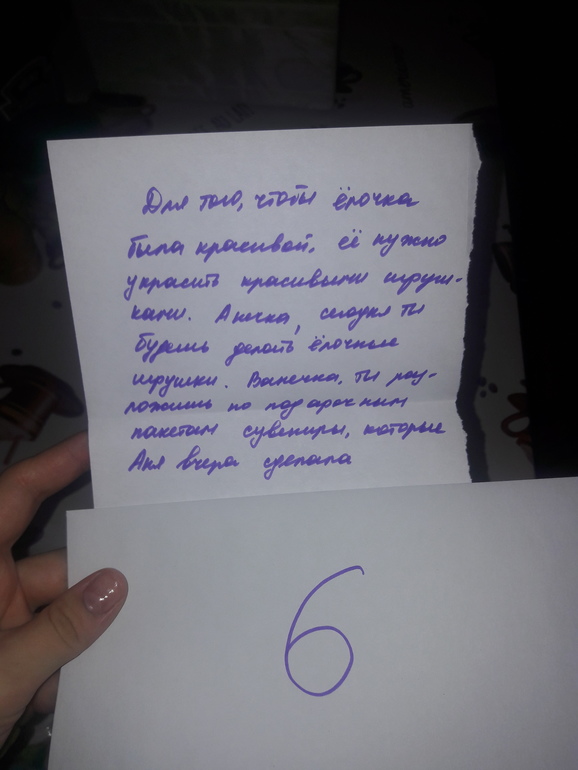 Для того, чтобы ёлочка
была красивой, её нужно
украсить красивыми игруш-
ками. Анечка, сегодня ты
будешь делать ёлочные
игрушки. Ванечка, ты раз-
ложишь по подарочным
пакетам сувениры, которые
Аня вчера сделала
6